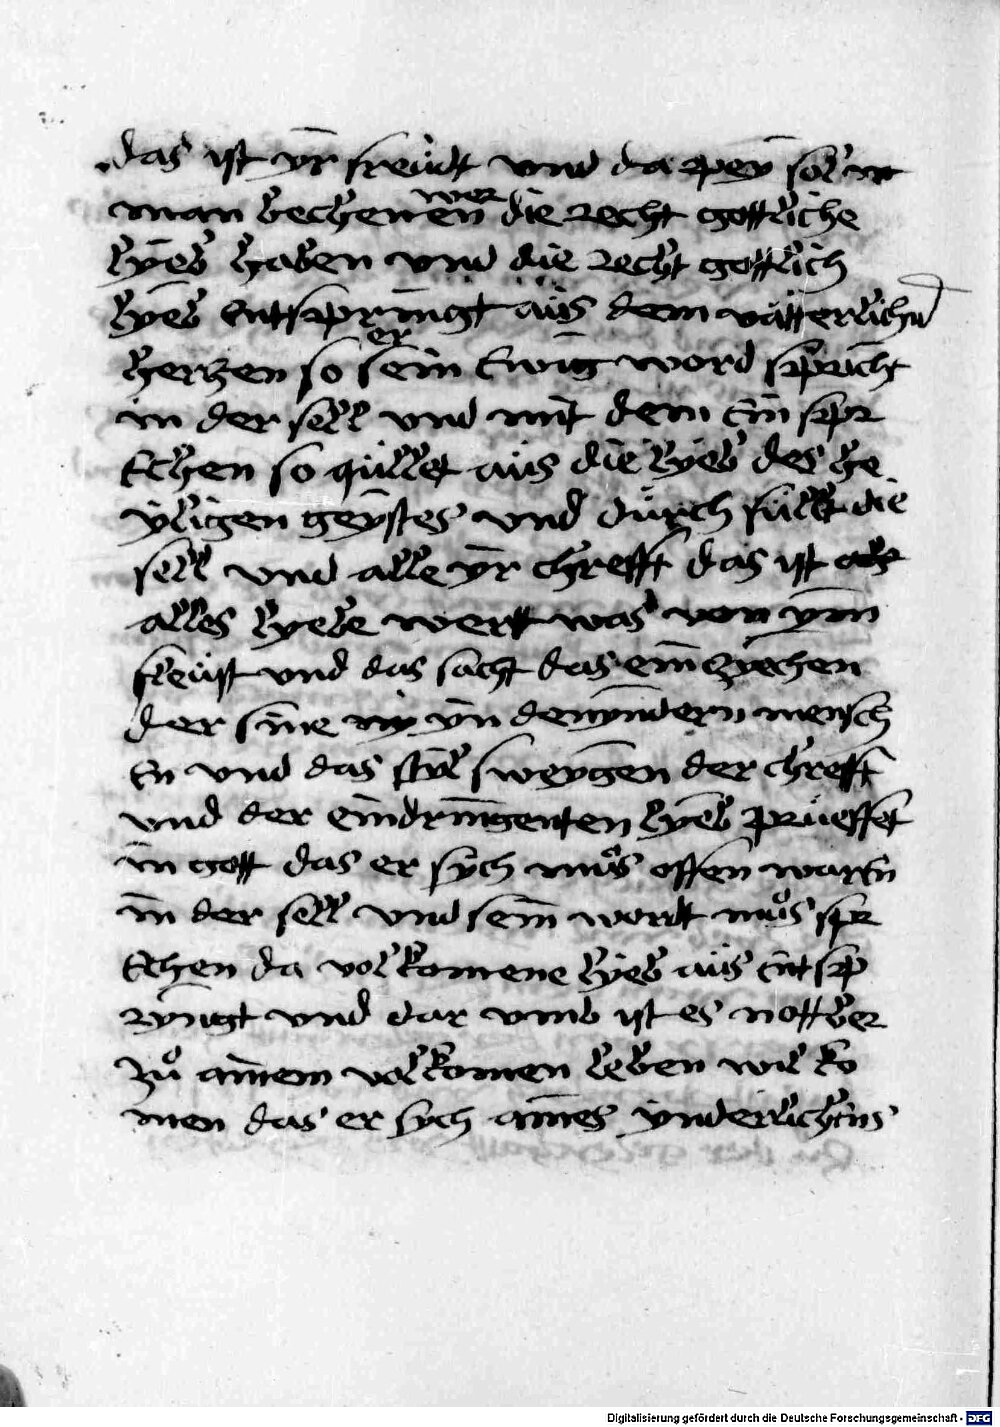 das ist yr freüdt vnd da pey sol m
man bechenen wer die recht gottliche
lyeb haben vnd die recht gottlich
lyeb entspringt aüs dem vätterlichn
herhzen so er sein Ewig word spricht
in der sell vnd mit dem Ein spr
Echen so qüillet aüs die lyeb des he
yligen geystes vnd dürch füllt die
sell vnd alle yr chrefft das ist als
alles lyebe wertt was von ym
fleüst vnd das sacht das einzyechen
der sine in yn den yndern mensch
En vnd das styl sweygen der chrefft
vnd der eindringenten lyeb prüeffet
in gott das er sych müs offen waren
in der sell vnd sein wordt müs spr
Echen da volkomene lyeb aüs Entsp
ryngt vnd dar vmb ist es nott wer
zü ainem volkomen leben wil ko
men das er sych aines ynderlichens
Digitalisierung gefördert durch die Deutsche Forschungsgemeinschaft - DFG